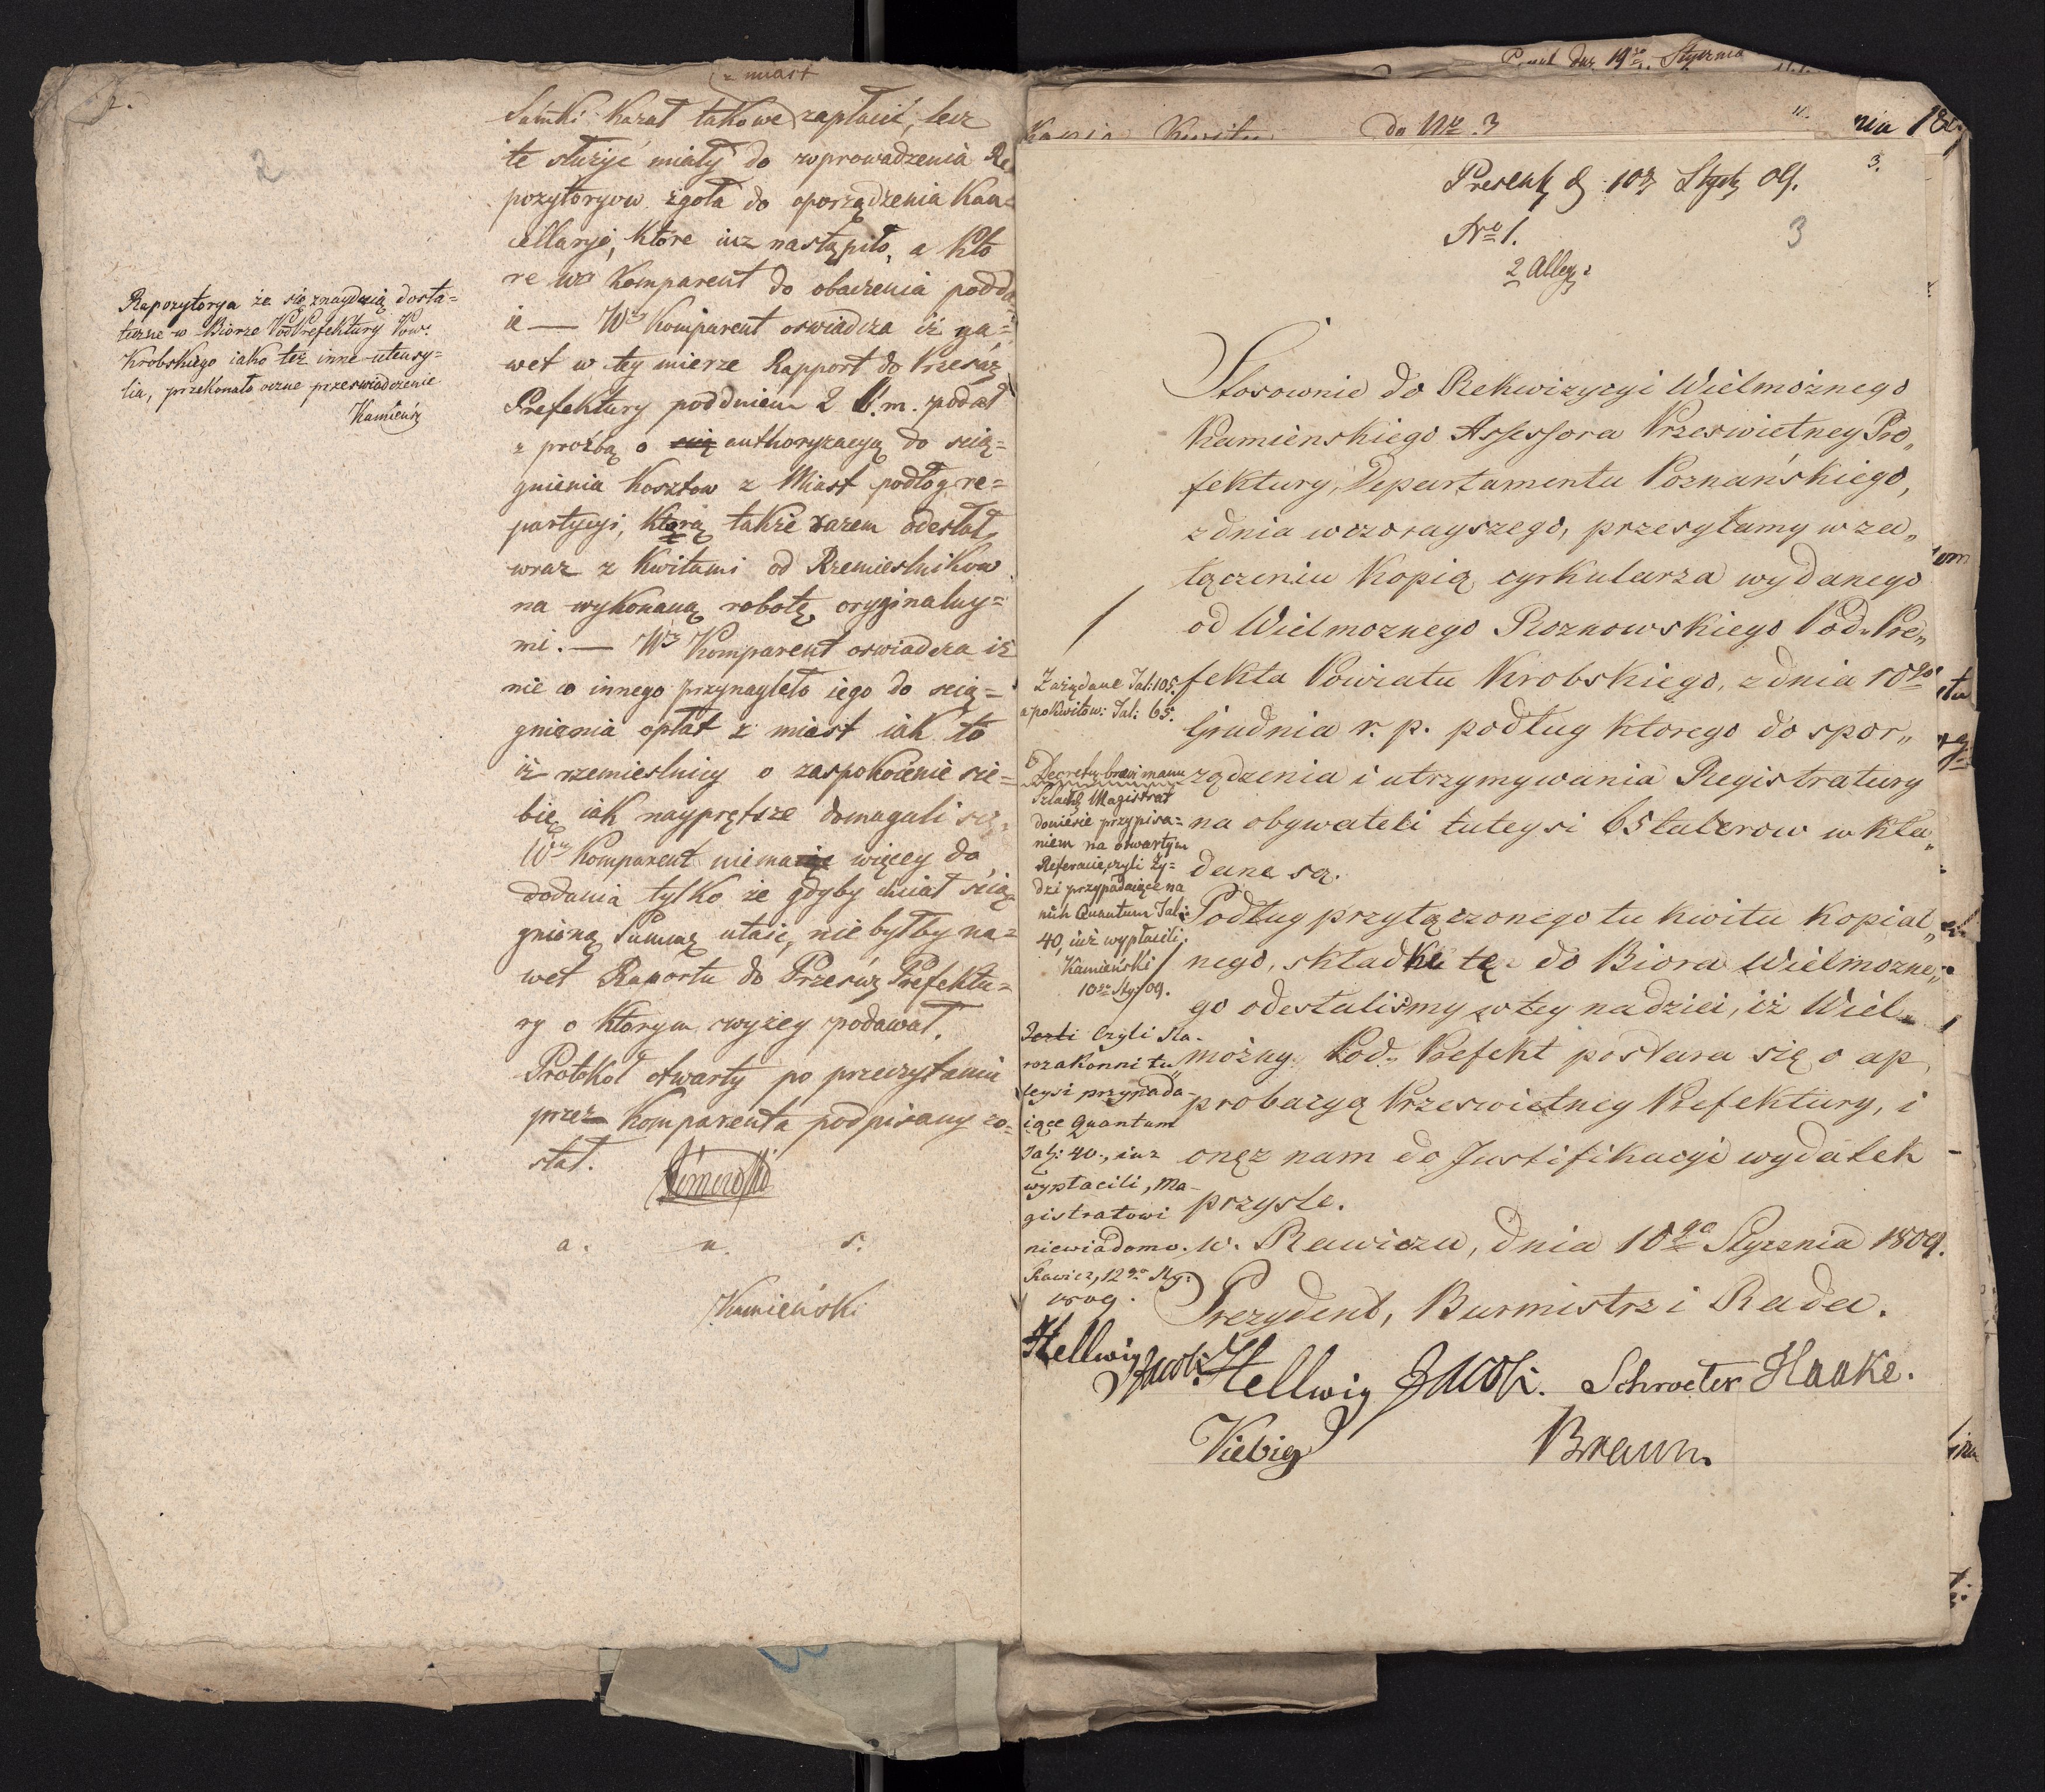 2.
2
z miast
Sumki kazał takowe zapłacić, lecz
te służyć miały do zaprowadzenia Re
pozytoryow zgoła do oporządzenia Kan=
cellaryi, które iuz nastąpiło, a kto
re Wr Komparent do obaczenia podda
ie — Wr Komparent oswiadcza iż na=
wet w tey mierze Rapport do Przesw
Prefektury pod dniem 2 b. m. podał
z proźbą o authoryzacyą do scią=
gnienia kosztow z Miast podłog re=
partycyi, którą także razem odesłał,
wraz z kwitami od Rzemieslnikow
na wykonaną robotę oryginalny=
mi. — Wr Komparent oswiadcza iż
nic o innego przynagleło iego do scią=
gnienia opłat z miast iak to
iż rzemieslnicy o zaspokoienie sie=
bie iak nayprętsze domagali się.
Wr Komparent niema więcey do
dodania tylko że gdyby chciał scią
gnioną Summę utaić, nie byłby na=
wet Raportu do Przesw Prefektu=
ry o ktorym wyżey podawał.
Protokoł otwarty po przeczytaniu
przez Komparenta podpisany zo=
stał.
a. u. s.
Kamieński
Repozytorya że się znayduią dosta=
teczne w Biorze PodPrefektury Pow.
Krobskiego iako też inne utensy=
lia, przekonało oczne przeswiadczenie
Kamieńs
Stycznia
do Nr. 3
11.
nia 18
3.
Present d. 10 Stycz 09.
No 1.
3
2 Alleg.
Stosownie do Rekwizycyi Wielmożnego
Kamienskiego Assessora Przeswietney Pre„
fektury, Departamentu Poznańskiego,
z dnia wczorayszego, przesyłamy w za„
łączeniu kopią cyrkularza wydanego
od Wielmoznego Roznowskiego Pod„Pre„
fekta Powiatu Krobskiego, z dnia 10go
Grudnia r. p. podług ktorego do spor„
rządzenia i utrzymywania Registratury
na obywateli tuteysi 65 talerow w kła„
dane są.
Podług przyłączonego tu kwitu kopial„
nego, składkę tę do Biora Wielmozne„
go odesłalismy w tey nadziei, iż Wiel„
możny Pod„ Prefekt postara się o ap„
probacyą Przeswietney Prefektury, i
onęz nam do Justifikacyi wydatek
przysle.
w. Rawiczu, dnia 10go Stycznia 1809.
Prezydent, Burmistrz i Rada.
Hellwig Jacobi. Schroeter Haake.
Viebig Braun.
Zażądane Tal: 105.
a pokwitow: Tal: 65.
Decretu brevi manu
Szlachę Magistrat
doniesie przypisa=
niem na otwartym
Referacie, czyli Ży=
dzi przypadaiące na
nich Quantum Tal:
40, iuż wypłacili.
Kamieński
10go Sty. 09.
Czyli Sta-
rozakonni tu„
teysi przypada-
iące Quantum
Tal: 40., iuz
wypłacili, Ma-
gistratowi
niewiadomo.
Rawicz, 12go Sty:
1809.
Hellwig Jacobi